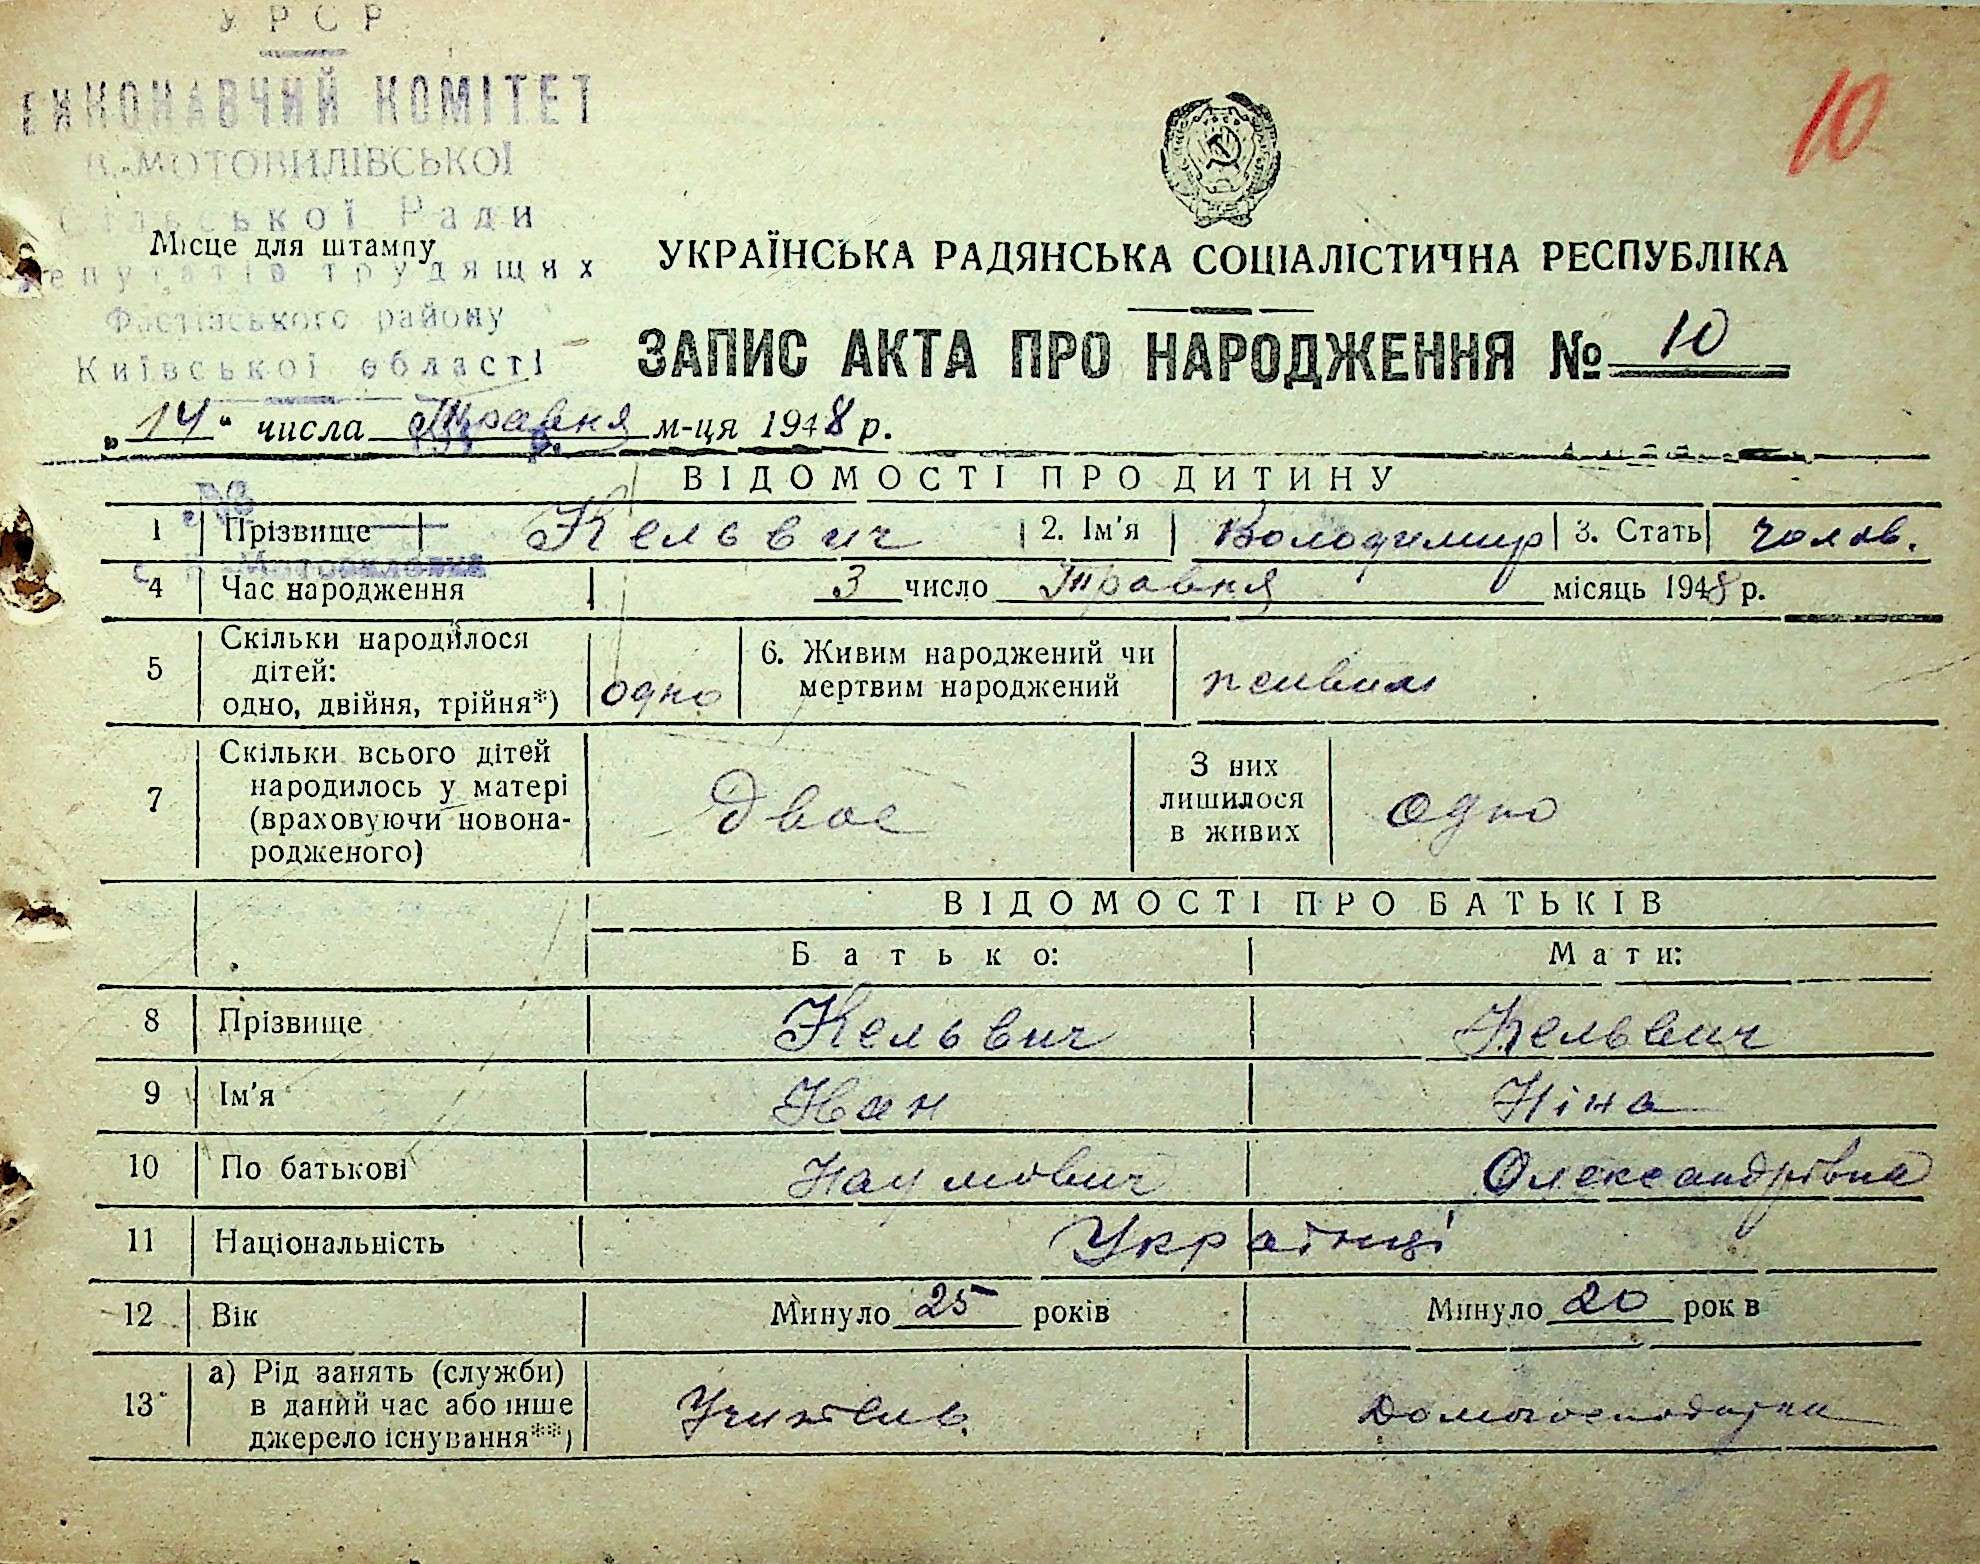 УРСР
ВИКОНАВЧИЙ КОМІТЕТ
В.-МОТОВИЛІВСЬКОЇ
Сільської Ради
Місце для штампу
депутатів трудящих
Фастівського району
Київської області
10
УКРАЇНСЬКА РАДЯНСЬКА СОЦІАЛІСТИЧНА РЕСПУБЛІКА
ЗАПИС АКТА ПРО НАРОДЖЕННЯ № 10
„14“ числа Травня м-ця 1948 р.
ВІДОМОСТІ ПРО ДИТИНУ
1 Прізвище Кельвич 2. Ім'я Володимир 3. Стать чолов.
4 Час народження 3 число Травня місяць 1948 р.
5 Скільки народилося дітей: одно, двійня, трійня*) одно 6. Живим народжений чи мертвим народжений живим
7 Скільки всього дітей народилось у матері (враховуючи новонародженого) Двоє З них лишилося в живих одно
ВІДОМОСТІ ПРО БАТЬКІВ
Батько: Мати:
8 Прізвище Кельвич Кельвич
9 Ім'я Іван Ніна
10 По батькові Наумович Олександрівна
11 Національність Українці
12 Вік Минуло 25 років Минуло 20 рок в
13 а) Рід занять (служби) в даний час або інше джерело існування**) Учитель Домогосподарка